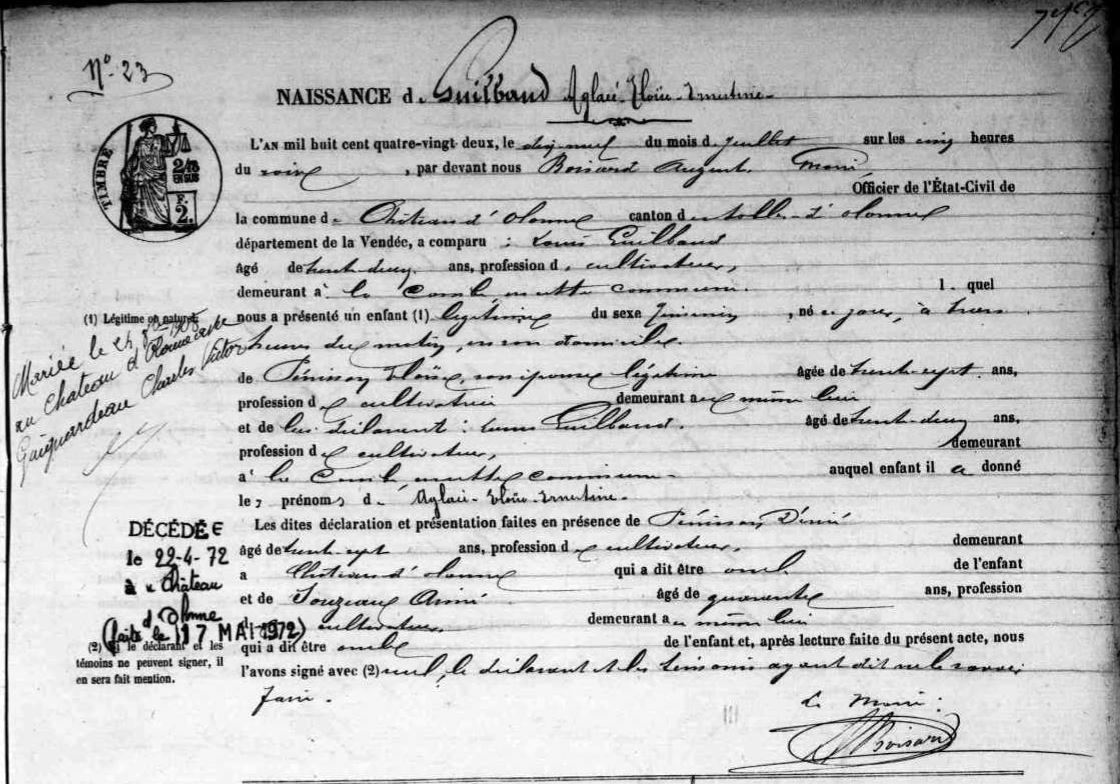 N° 23
NAISSANCE d e Guilbaud Aglaé-Eloïse-Ernestine
TIMBRE
2/10
EN SUS
F.
2.
L'AN mil huit cent quatre-vingt deux, le dix neuf du mois d. Juillet sur les cinq heures
du soir, par devant nous Boisard August. Maire
Officier de l'État-Civil de
la commune de Château d'Olonne canton des Sables-d'Olonne
département de la Vendée, a comparu : Louis Guilbaud
âgé de trente-deux ans, profession d e cultivateur,
demeurant à la Combe en cette commune. l quel
(1) Légitime ou naturel.
nous a présenté un enfant (1) légitime du sexe féminin, né ce jour, à trois
heures du matin, en son domicile.
Mariée le 25 1905
au Chateau d'Olonne avec
Gaignardeau Charles Victor
de Pénisson Eloïse, son épouse légitime âgée de trente-sept ans,
profession de cultivatrice demeurant avec lui
et de lui déclarant : Louis Guilbaud. âgé de trente-deux ans,
profession de cultivateur, demeurant
à la Combe en cette commune. auquel enfant il a donné
les prénoms d e Aglaé-Eloïse-Ernestine.
Les dites déclaration et présentation faites en présence de Pénisson
âgé de trente-sept ans, profession de cultivateur, demeurant
a Château d'Olonne qui a dit être oncle de l'enfant
et de Aimé âgé de quarante ans, profession
d cultivateur, demeurant au même lieu
qui a dit être oncle de l'enfant et, après lecture faite du présent acte, nous
l'avons signé avec (2) seul, le déclarant et les témoins ayant dit ne le savoir
faire.
DÉCÉDÉE
le 22-4-72
à Château
d'Olonne
(faite le 17 MAI 1972)
(2) Si le déclarant et les
témoins ne peuvent signer, il
en sera fait mention.
Le Maire.
Boisard